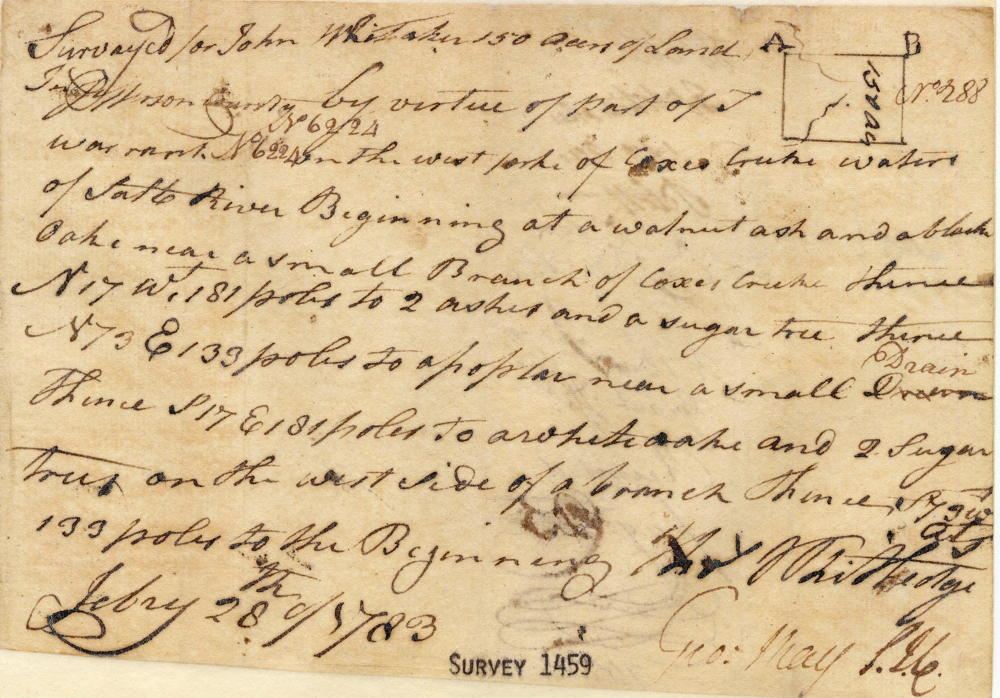 Survayed for John Whitaker 150 acers of Land
A B
150 Ac
No 288
In Jefferson County by virtue of part of T
No 6224
warrant No 6224 on the west forke of Coxes Creeke waters
of Salt River Beginning at a walnut ash and a black
Oake near a small Branch of Coxes Creeke thence
N 17 W. 181 poles to 2 ashes and a sugar tree thence
N 73 E 133 poles to a poplar near a small Drain
Thence S 17 E 181 poles to a white oake and 2 Sugar
trees on the west side of a branch Thence S 73 W
133 poles to the Beginning
Whitledge
Febry 28th 1783
Geo: May S.J.C.
SURVEY 1459